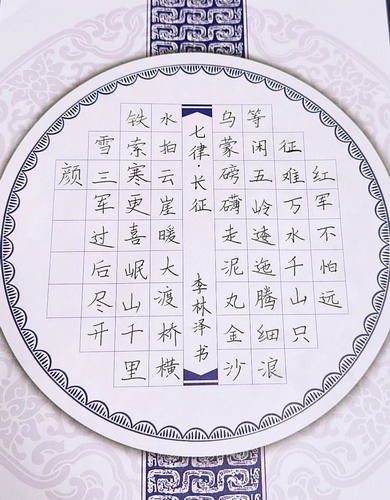 红军不怕远
征难万水千山只
等闲五岭逶迤腾细浪
乌蒙磅礴走泥丸金沙
七律·长征 李林泽书
水拍云崖暖大渡桥横
铁索寒更喜岷山千里
雪三军过后尽开
颜